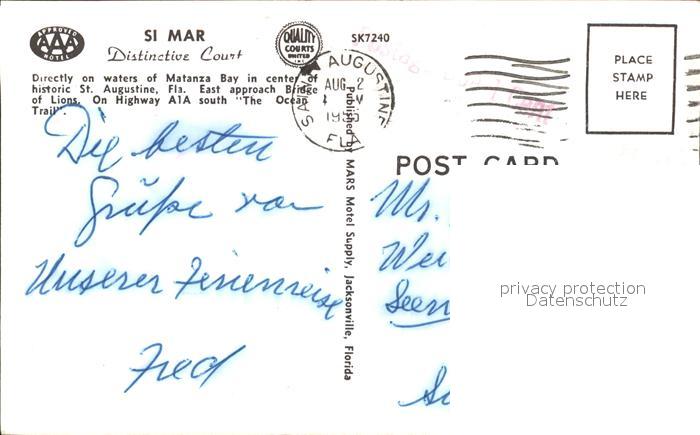 APPROVED
AAA
HOTEL
SI MAR
Distinctive Court
QUALITY
COURTS
UNITED
INC
SK7240
Directly on waters of Matanza Bay in center of
historic St. Augustine, Fla. East approach Bridge
of Lions. On Highway A1A south "The Ocean
Trail".
AUGUSTINE
AUG 2
FLA
PLACE
STAMP
HERE
POST CARD
Published by MARS Motel Supply, Jacksonville, Florida
Die besten
Grüße von
Unserer Ferienreise
Fred
Mr.
Seen
privacy protection
Datenschutz